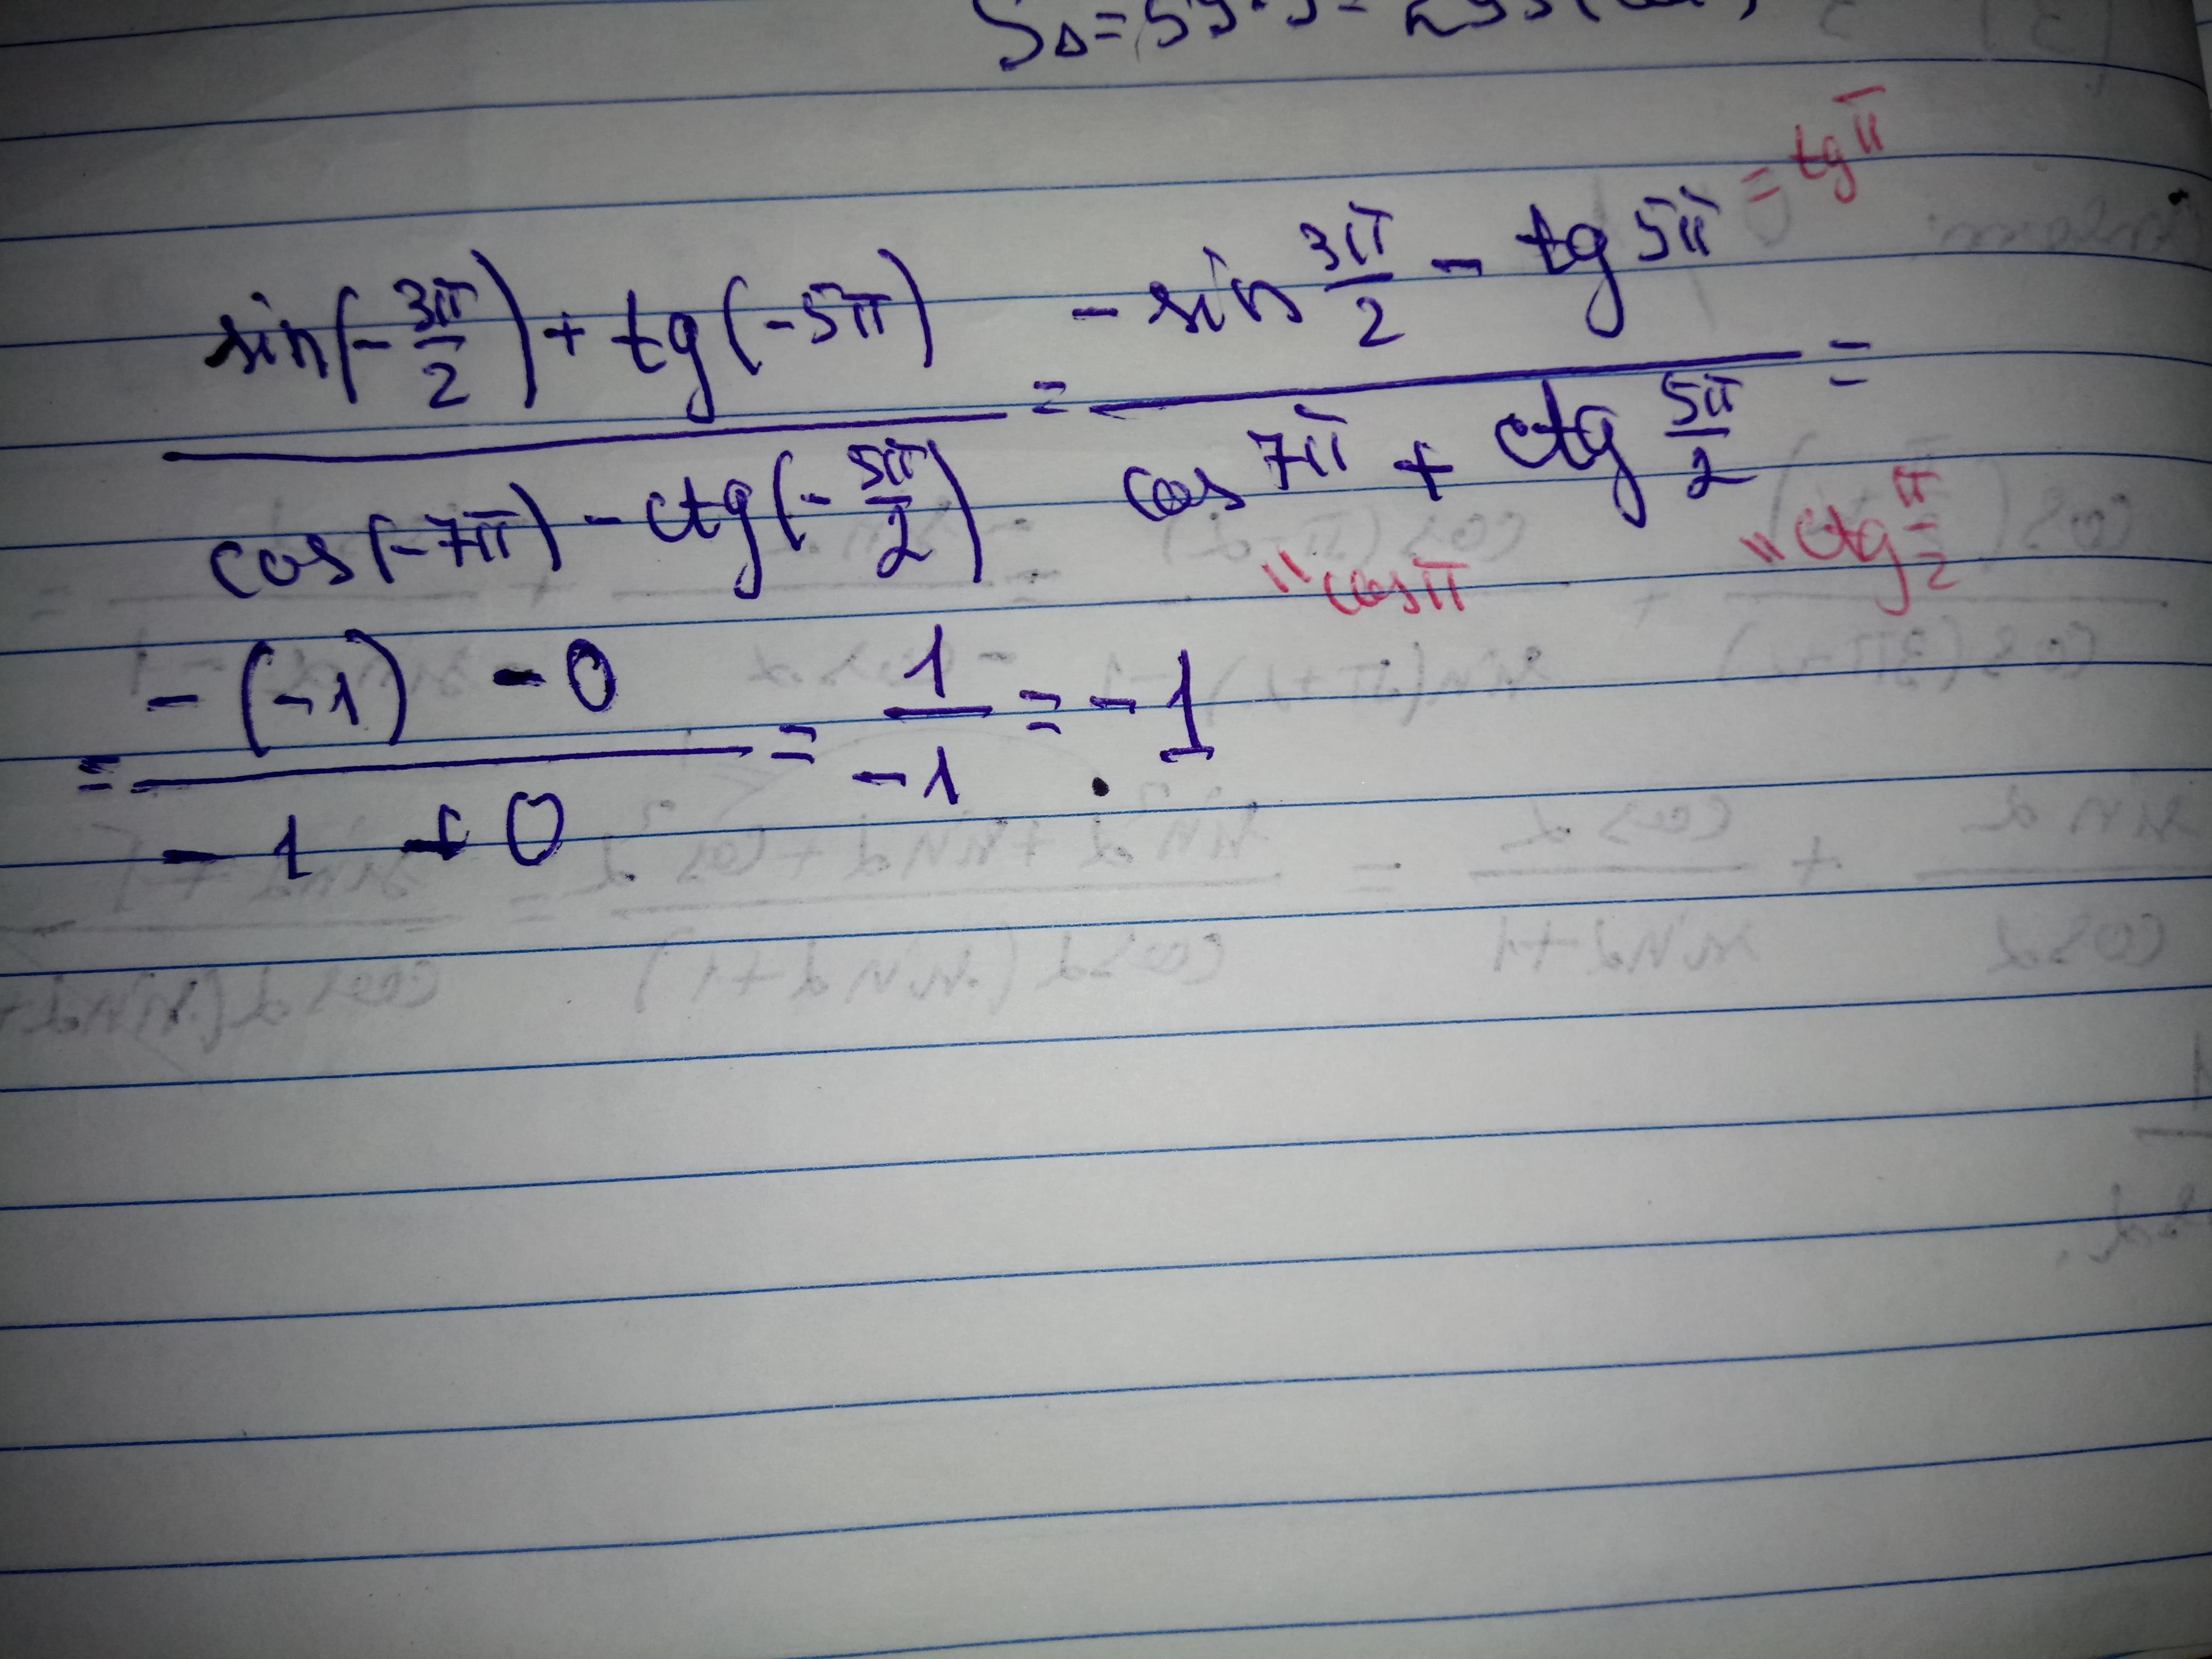 S△=
= tg π
sin(-3π/2) + tg(-5π) / cos(-7π) - ctg(-5π/2) = -sin 3π/2 - tg 5π / cos 7π + ctg 5π/2 =
" cos π " ctg π/2
= -(-1) - 0 / -1 + 0 = 1/-1 = -1